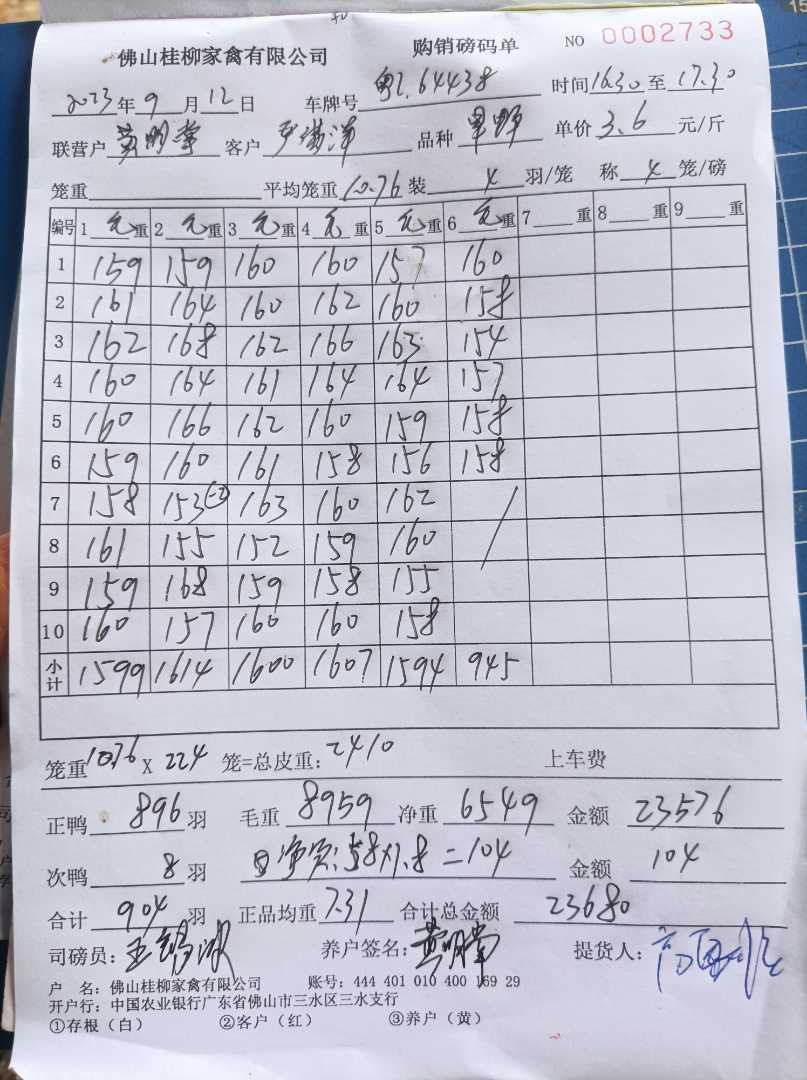 佛山桂柳家禽有限公司 购销磅码单 NO 0002733
2023年9月12日 车牌号 粤L64438 时间16:30至17:30
联营户 黄明堂 客户 品种 单价3.6元/斤
笼重 平均笼重10.76装4羽/笼 称4笼/磅
编号 1 元重 2 元重 3 元重 4 元重 5 元重 6 元重 7 重 8 重 9 重
1 159 159 160 160 157 160
2 161 164 160 162 160 158
3 162 168 162 166 163 154
4 160 164 161 164 164 157
5 160 166 162 160 159 158
6 159 160 161 158 156 158
7 158 153(-2) 163 160 162 /
8 161 155 152 159 160
9 159 168 159 158 155
10 160 157 160 160 158
小计 1599 1614 1600 1607 1594 945
笼重10.76 X 224 笼=总皮重:2410 上车费
正鸭 896 羽 毛重 8959 净重 6549 金额 23576
次鸭 8 羽 净重:58×1.8=104 金额 104
合计 904 羽 正品均重 7.31 合计总金额 23680
司磅员: 养户签名:黄明堂 提货人:
户 名:佛山桂柳家禽有限公司 账号:444 401 010 400 169 29
开户行:中国农业银行广东省佛山市三水区三水支行
①存根(白) ②客户(红) ③养户(黄)